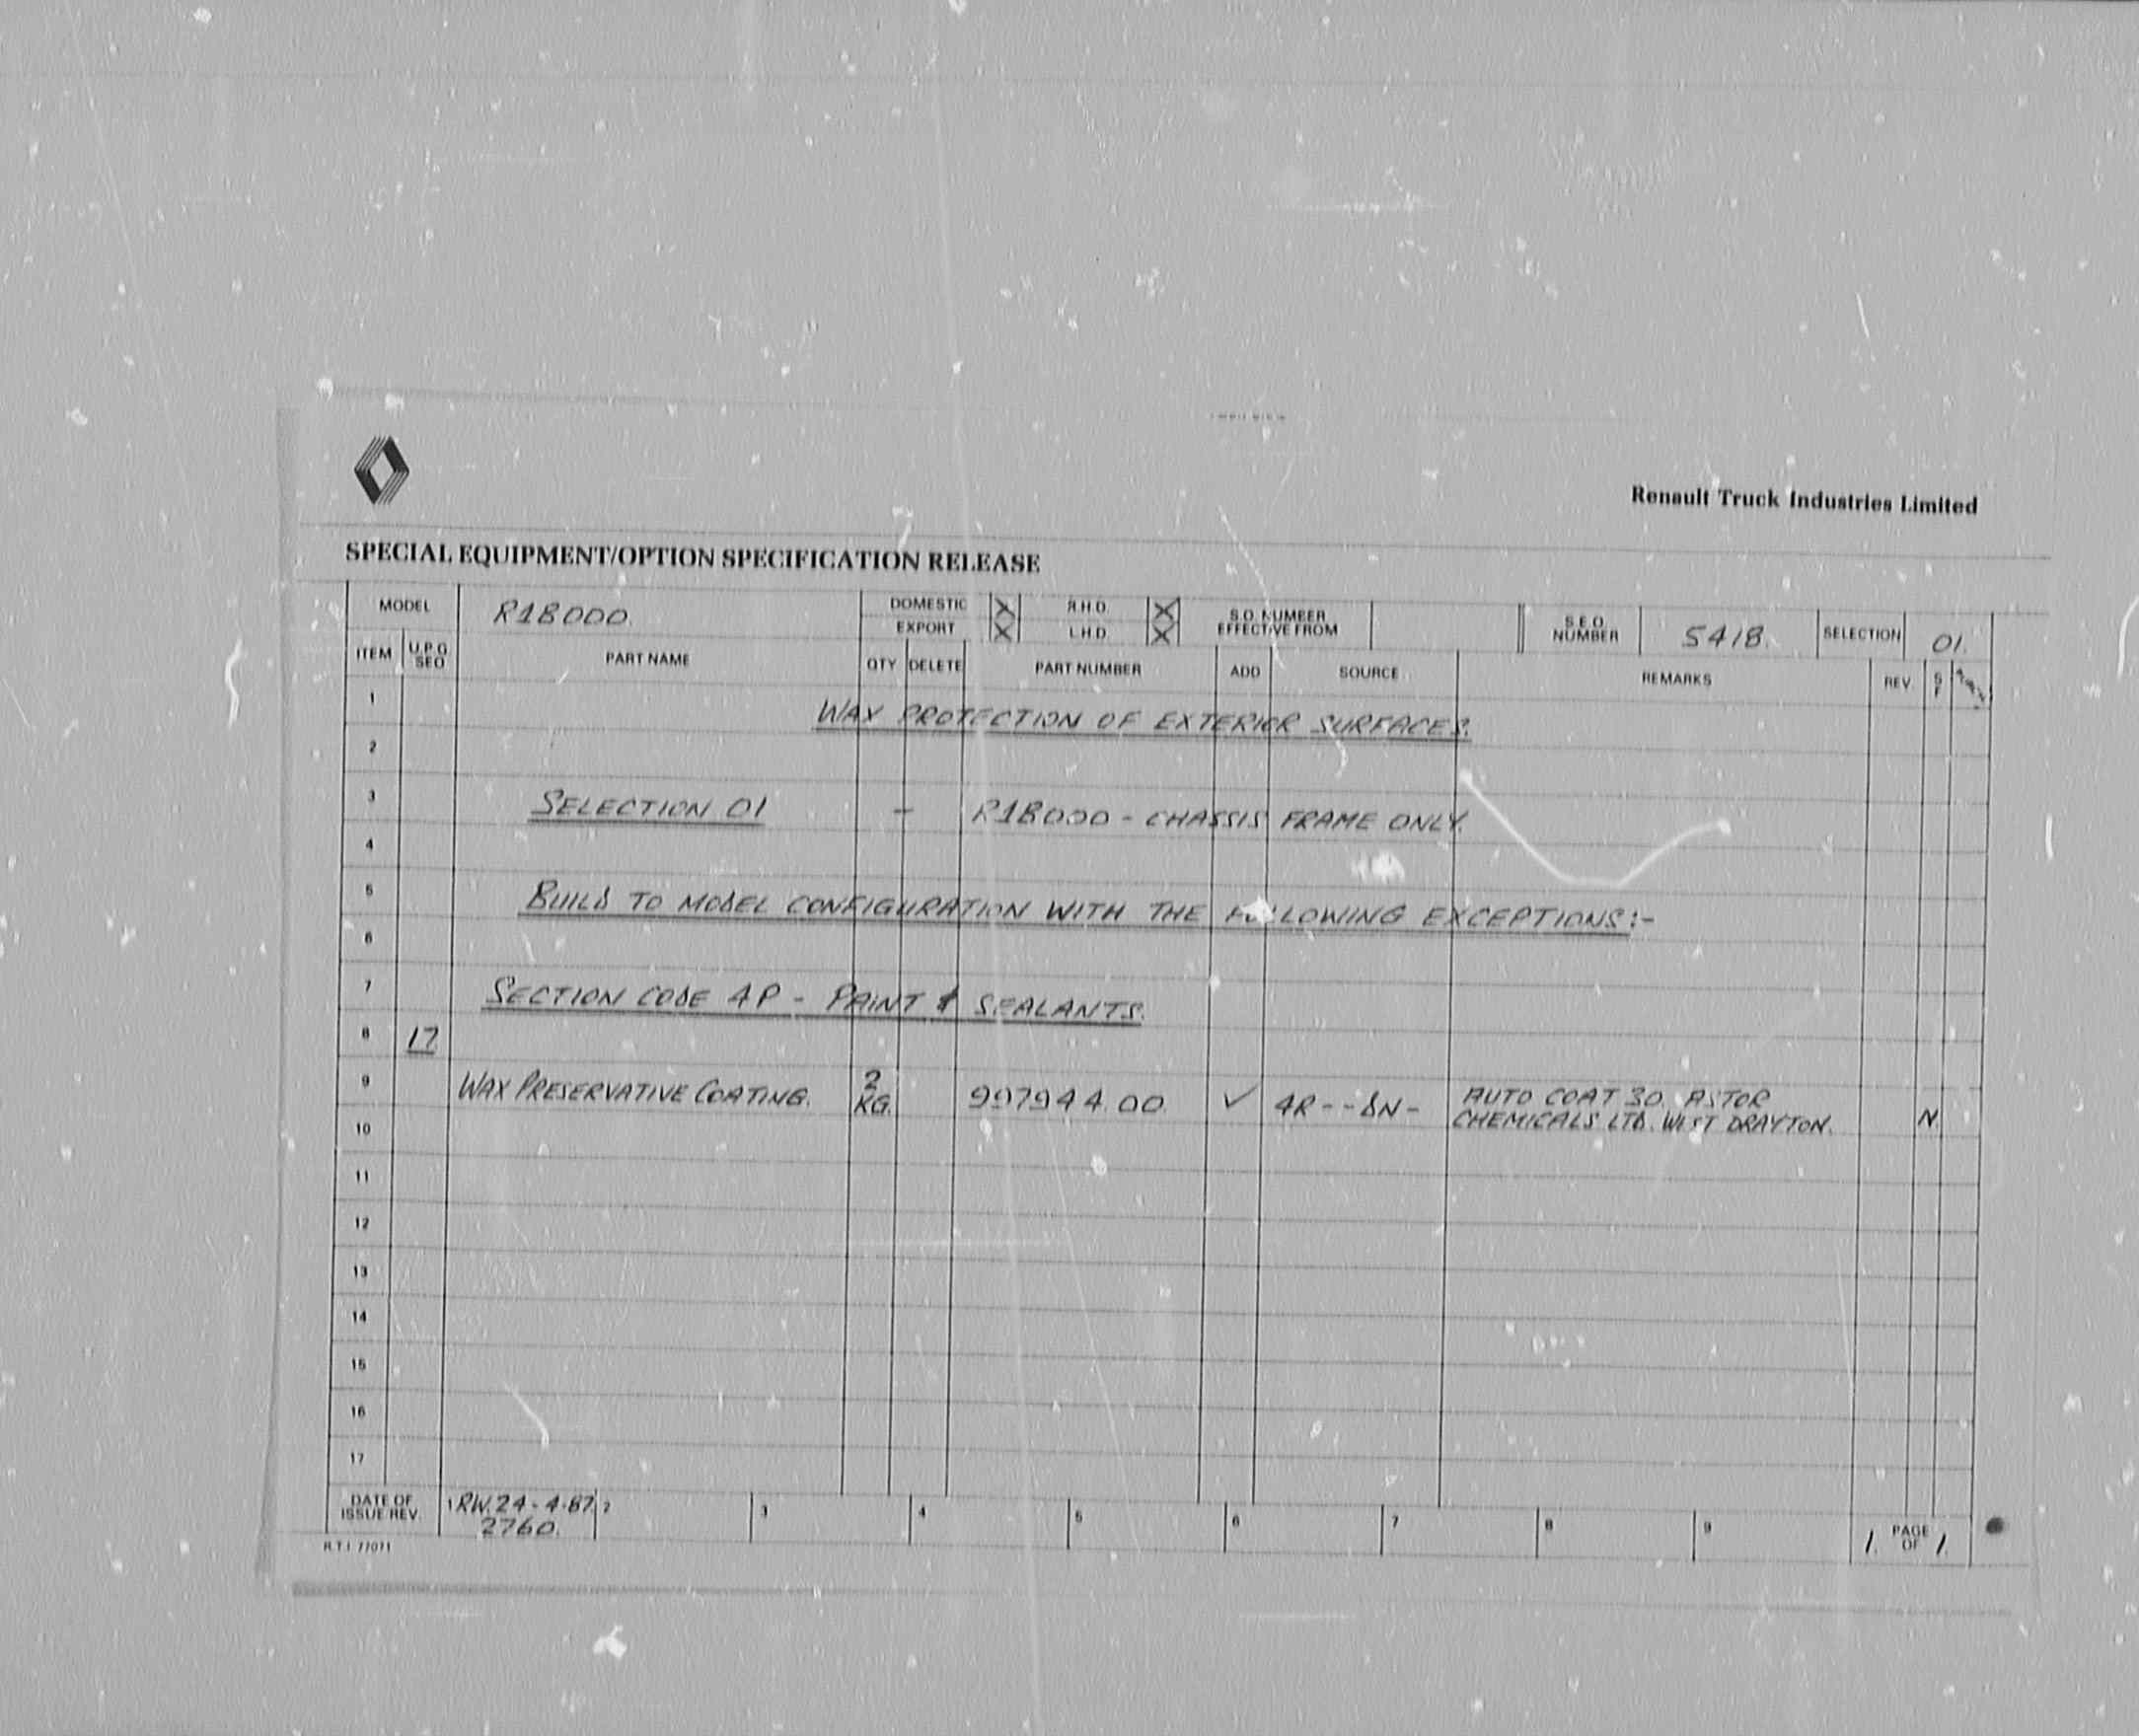 Renault Truck Industries Limited
SPECIAL EQUIPMENT/OPTION SPECIFICATION RELEASE
MODEL R18000. DOMESTIC X R.H.D. X S.O. NUMBER EFFECTIVE FROM S.E.O. NUMBER 5418. SELECTION 01.
EXPORT X L.H.D. X
ITEM U.P.G. SEO PART NAME QTY DELETE PART NUMBER ADD SOURCE REMARKS REV.
1 WAX PROTECTION OF EXTERIOR SURFACES.
2
3 SELECTION 01 - R18000 - CHASSIS FRAME ONLY.
4
5 BUILD TO MODEL CONFIGURATION WITH THE FOLLOWING EXCEPTIONS:-
6
7 SECTION CODE 4P - PAINT & SEALANTS.
8 17
9 WAX PRESERVATIVE COATING. 2 KG. 997944.00 ✓ 4R--DN- AUTO COAT 30. ASTOR
CHEMICALS LTD. WEST DRAYTON. N.
10
11
12
13
14
15
16
17
DATE OF ISSUE/REV. 1 RW. 24-4-87. 2 3 4 5 6 7 8 9 1. PAGE OF 1.
2760.
R.T.I. 77071